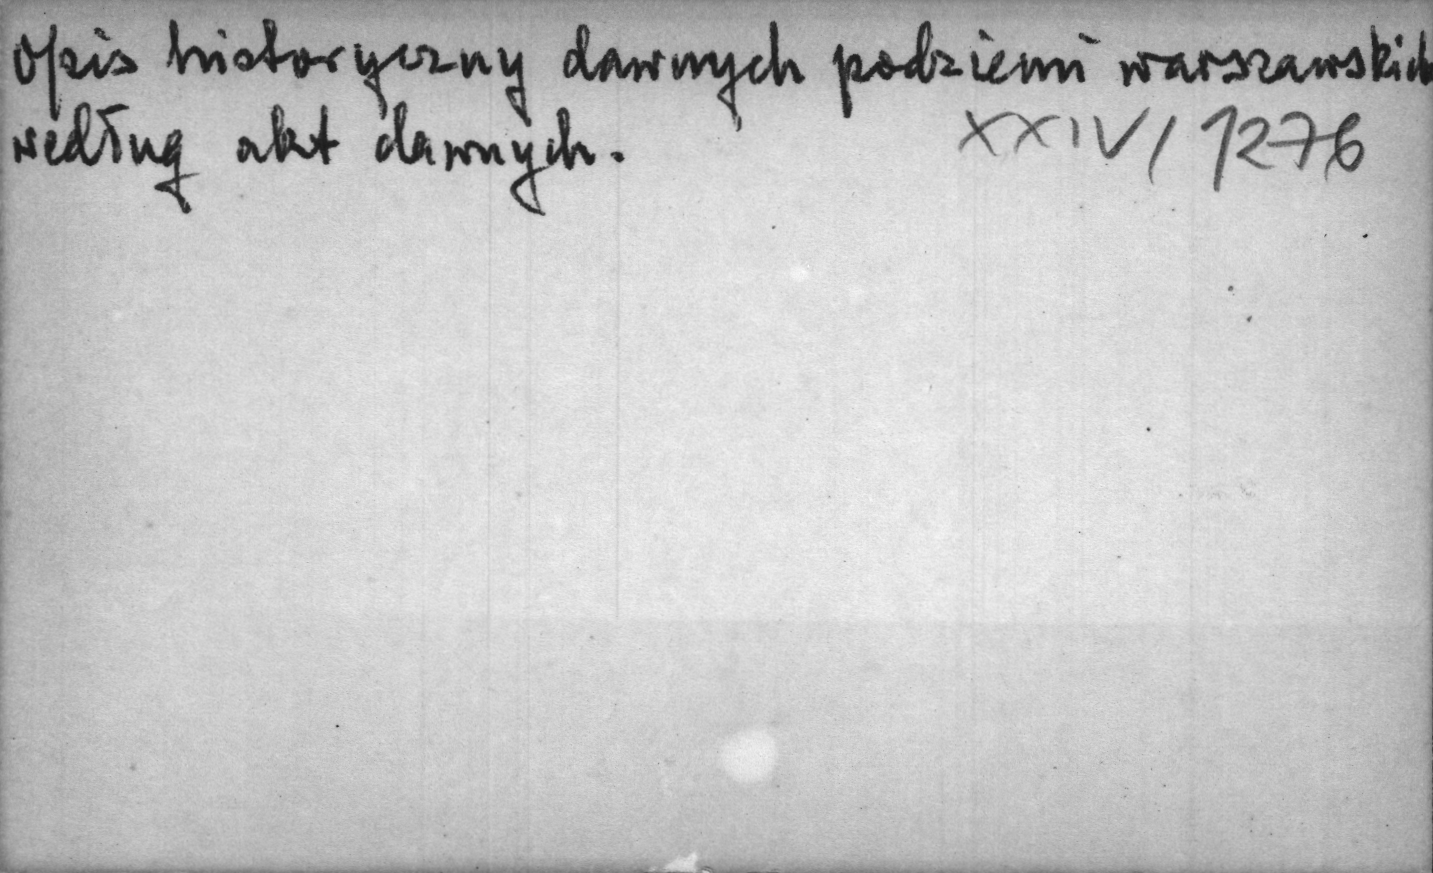 Opis historyczny dawnych podziemi warszawskich
według akt dawnych.
XXIV/1276